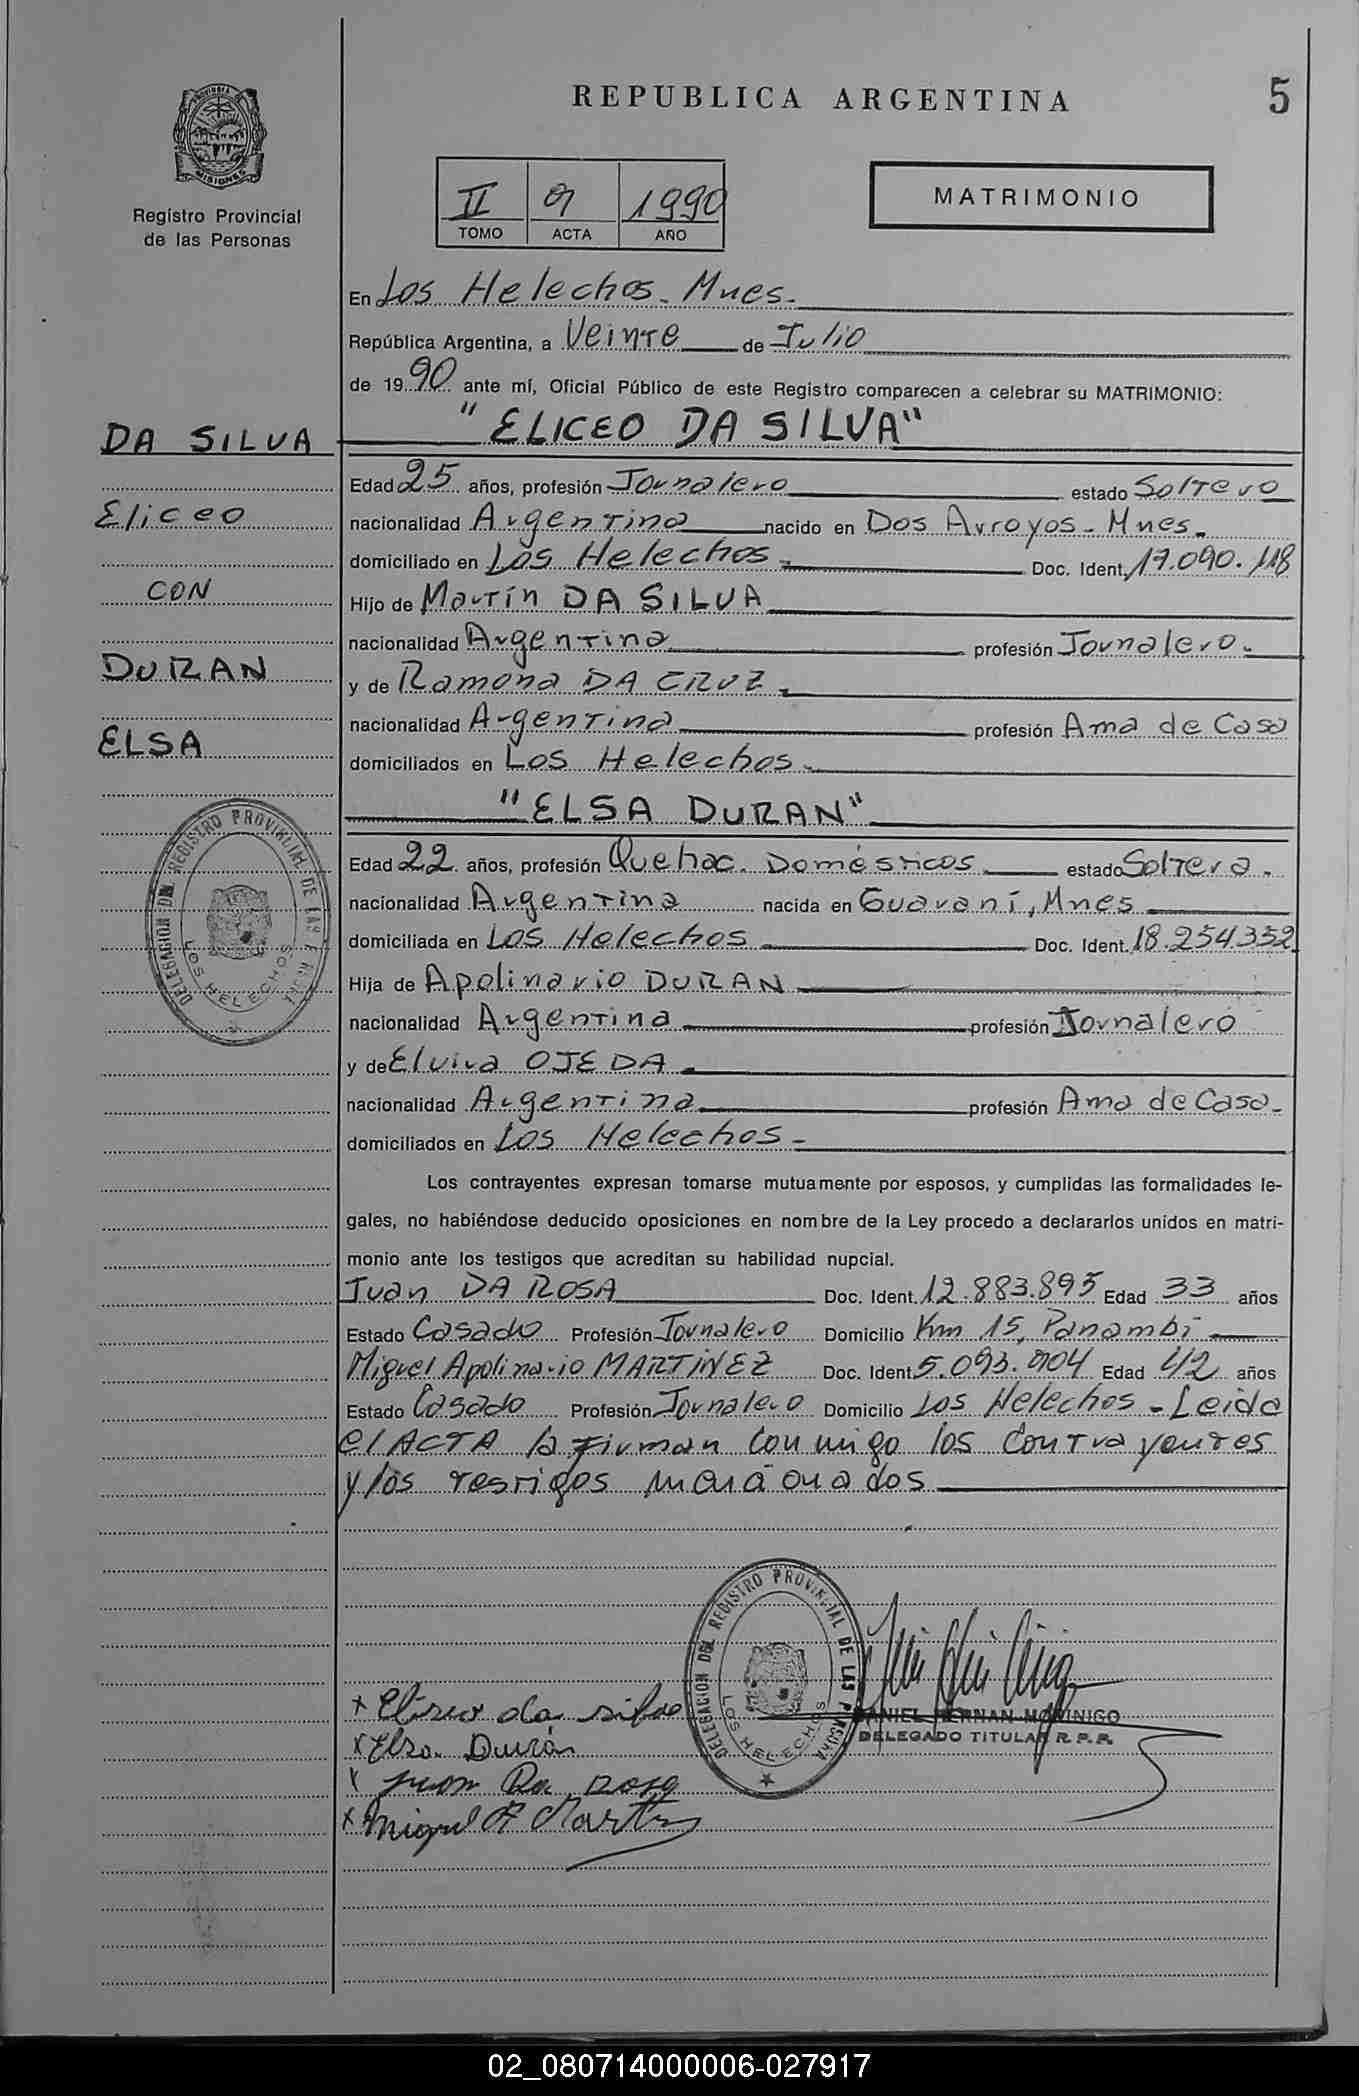 REPUBLICA ARGENTINA
5
PROVINCIA DE MISIONES
Registro Provincial
de las Personas
II 9 1990
TOMO ACTA AÑO
MATRIMONIO
En Los Helechos. Mnes.
República Argentina, a Veinte de Julio
de 1990 ante mí, Oficial Público de este Registro comparecen a celebrar su MATRIMONIO:
"ELICEO DA SILVA"
DA SILVA
Eliceo
CON
DURAN
ELSA
Edad 25 años, profesión Jornalero estado Soltero
nacionalidad Argentina nacido en Dos Arroyos. Mnes.
domiciliado en Los Helechos. Doc. Ident. 17.090.118
Hijo de Martín DA SILVA
nacionalidad Argentina profesión Jornalero.
y de Ramona DA CRUZ.
nacionalidad Argentina profesión Ama de Casa
domiciliados en Los Helechos.
"ELSA DURAN"
Edad 22 años, profesión Quehac. Domésticos estado Soltera.
nacionalidad Argentina nacida en Guaraní, Mnes
domiciliada en Los Helechos Doc. Ident. 18.254.352
Hija de Apolinario DURAN
nacionalidad Argentina profesión Jornalero
y de Elvira OJEDA.
nacionalidad Argentina profesión Ama de Casa.
domiciliados en Los Helechos.
Los contrayentes expresan tomarse mutuamente por esposos, y cumplidas las formalidades le-
gales, no habiéndose deducido oposiciones en nombre de la Ley procedo a declararlos unidos en matri-
monio ante los testigos que acreditan su habilidad nupcial.
Juan DA ROSA Doc. Ident. 12.883.895 Edad 33 años
Estado Casado Profesión Jornalero Domicilio Km 15, Panambi
Miguel Apolinario MARTINEZ Doc. Ident. 5.093.904 Edad 42 años
Estado Casado Profesión Jornalero Domicilio Los Helechos - Leida
el ACTA la firman conmigo los contrayentes
y los testigos mencionados
DELEGACION DEL REGISTRO PROVINCIAL DE LAS PERSONAS
LOS HELECHOS
DELEGACION DEL REGISTRO PROVINCIAL DE LAS PERSONAS
LOS HELECHOS
DANIEL HERNAN MORINIGO
DELEGADO TITULAR R.P.P.
x Eliseo da silva
x Elsa Durán
x Juan Da Rosa
x Miguel A Martinez
02_080714000006-027917